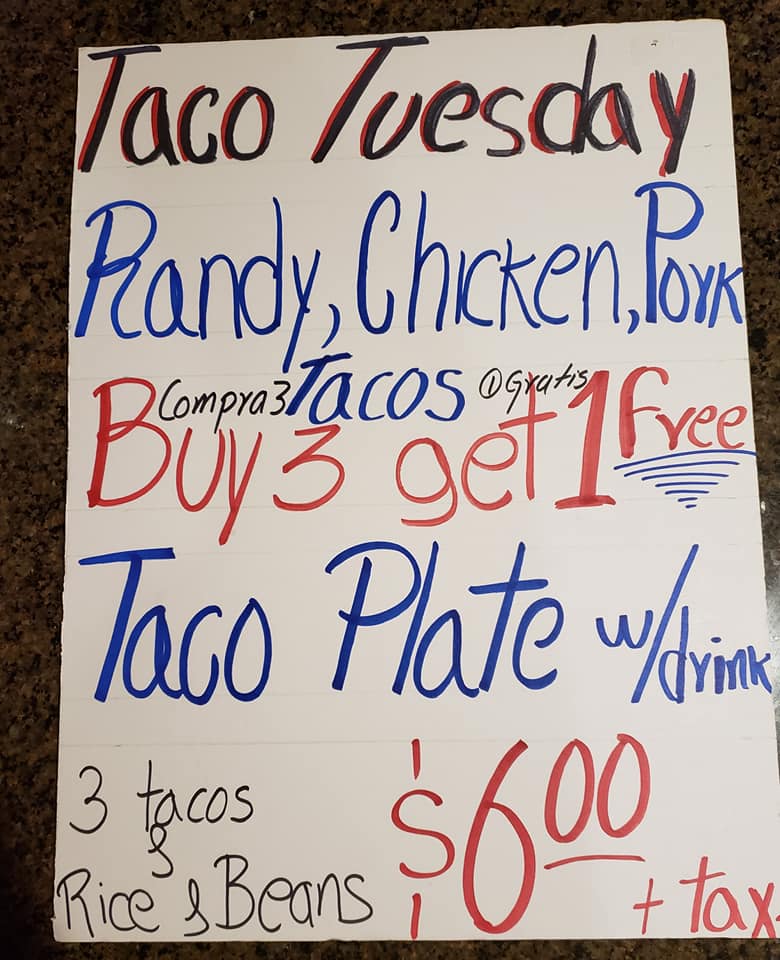 Taco Tuesday
Randy, Chicken, Pork
Compra 3 Tacos ① Gratis
Buy 3 get 1 free
Taco Plate w/drink
3 tacos
&
Rice & Beans
$6.00
+ tax